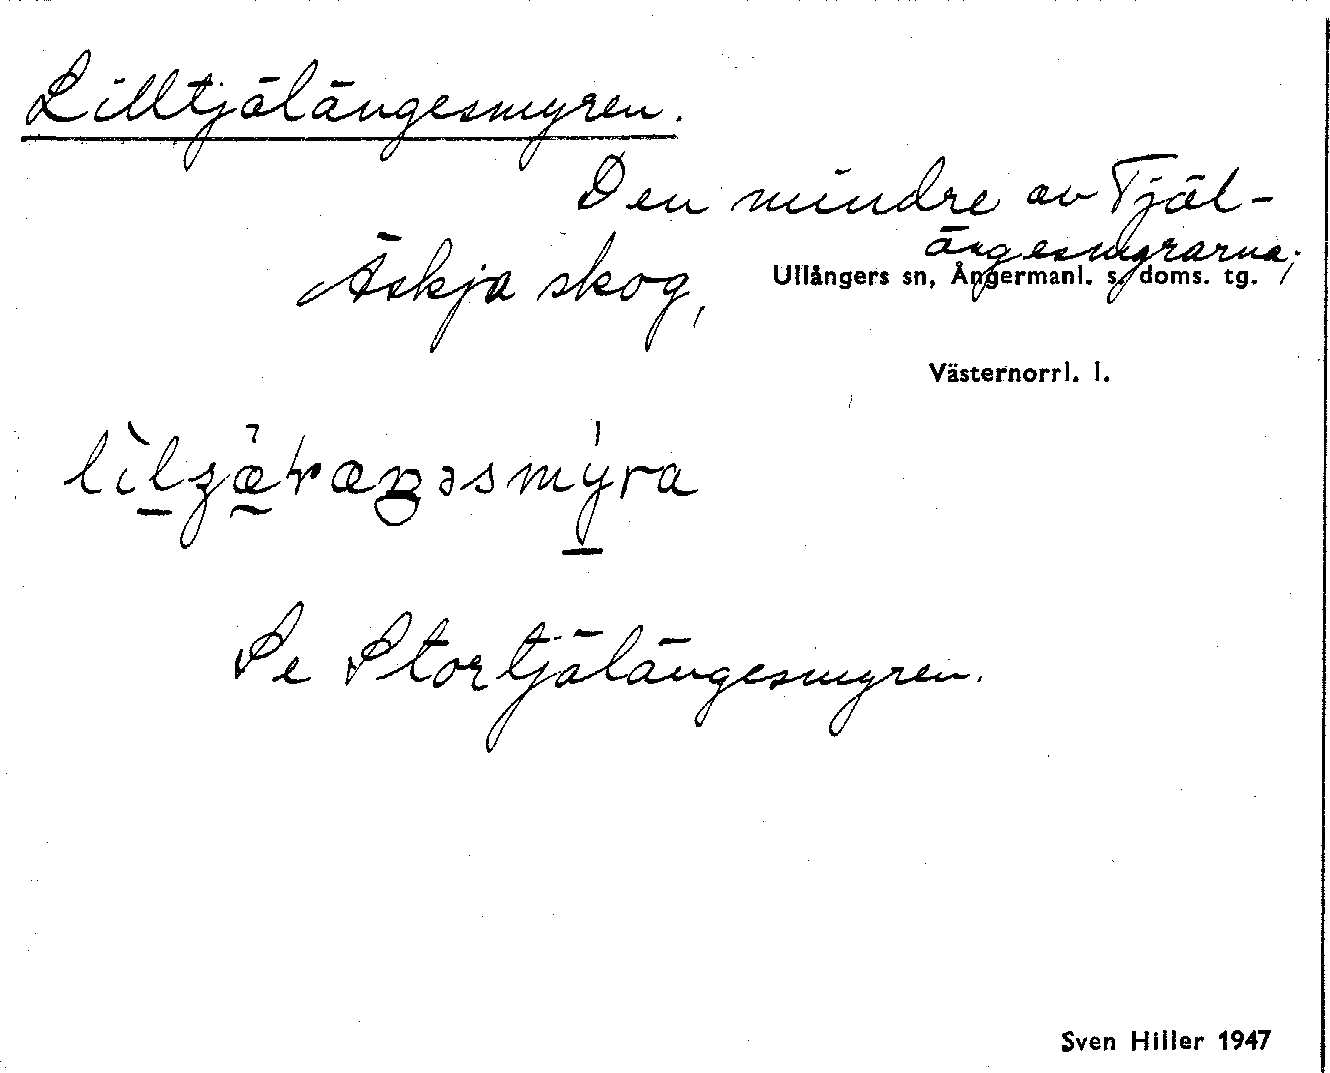 Lilltjälängesmyren.
Den mindre av Tjäl-
ängesmyrarna;
Äskja skog,
Ullångers sn, Ångermanl. s. doms. tg.
Västernorrl. l.
Se Stortjälängesmyren.
Sven Hiller 1947